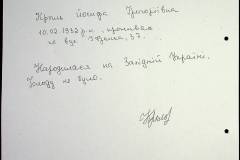 Кроль Йосифа Григорівна
10.02.1932 р.н. проживає
по вул. 37.
Народилася на Західній Україні.
Голоду не було.